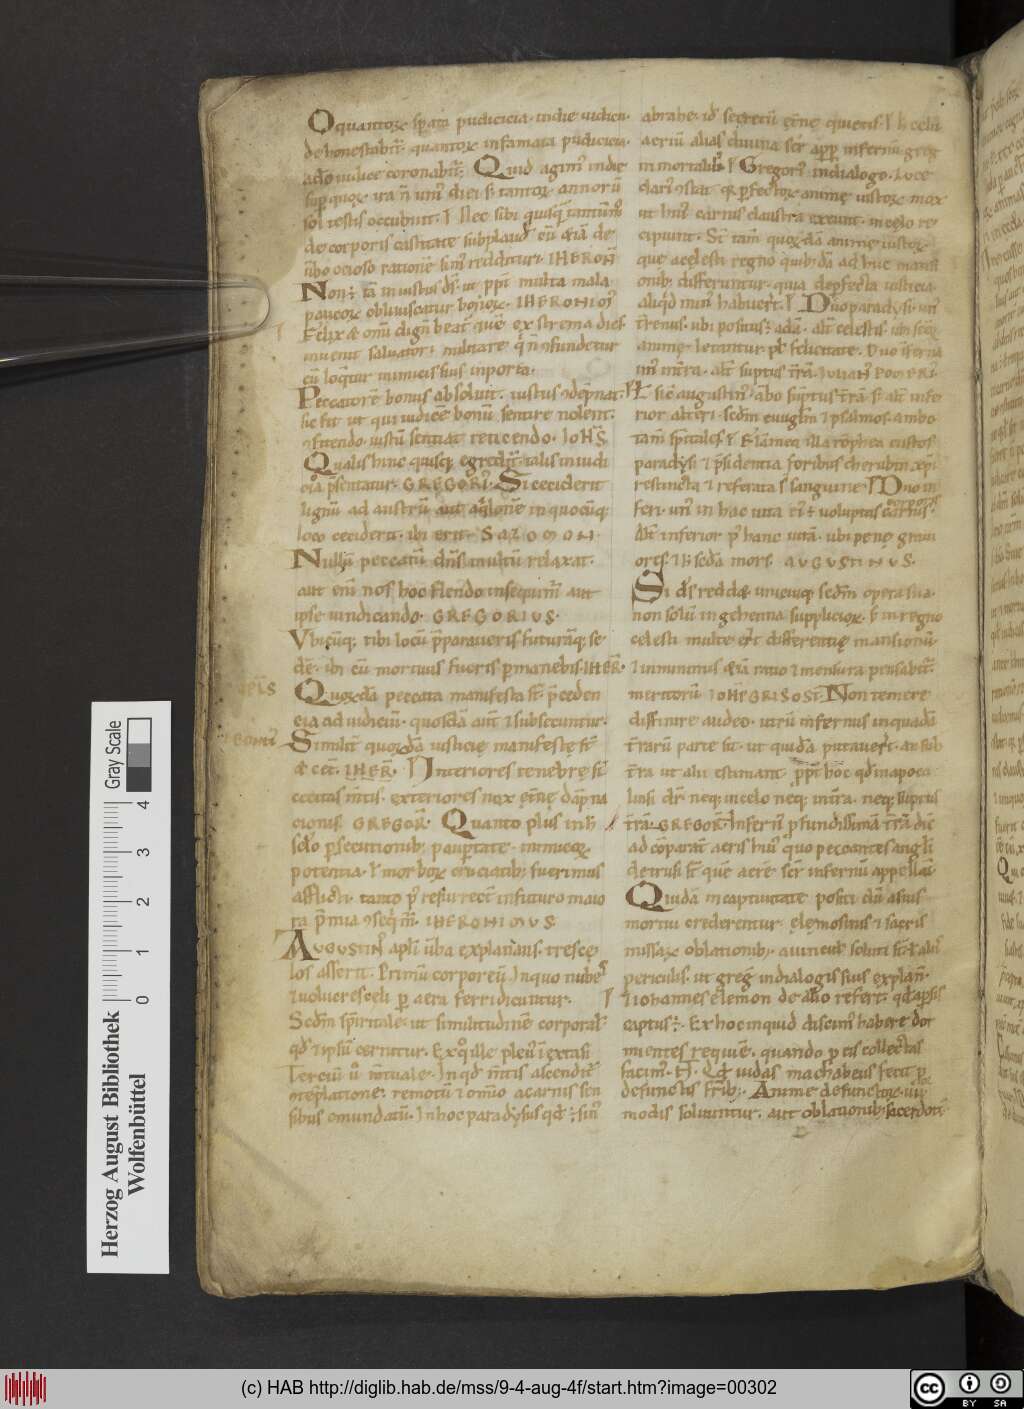 O quantoꝝ sp̄ata pudicicia in die iudicii
dehonestabit᷑. quantoꝝ infamata pudicicia
a dño iudice coronabit᷑. Quid agim᷒ in die
sup̱ quoꝝ ira n̄ uni᷒ diei s; tantoꝝ annoꝝ
sol testis occubuit. Nec sibi quisq̄
de corporis castitate cū &iā de
ūbo ocioso rationē sim᷒ reddituri. IHERON̄
Non ē tā iniustus ds̄. ut mala
paucoꝝ obliuiscatur bonoꝝ. IHERONIM᷒
Felix & omī dignꝰ beat᷑ quē extrema dies
inuenit saluatori militare. q̄ n̄ ꝯfundetur
cū loq̄tur inimicis suis in porta.
Peccatorē bonus absoluit. iustus ꝯdēpnat.
sic fit ut qui iudicē bonū sentire nolent.
iustū sentiat reticendo. IOH̄S
Qualis hinc quisq; egredit᷑. talis in iudi
cio p̄sentatur. GREGORI᷒. Si ceciderit
lignū ad austrū aut aq̇lonē in quocūq;
loco ceciderit. ibi erit. SALOMON.
Nullū peccatū dn̄s inultū relaxat.
aut eni᷒ nos hoc flendo insequim᷒ aut
ipse uindicando. GREGORIVS.
Vbicūq; tibi locū p̄paraueris futurāq; se
dē. ibi cū mortuus fueris p̱manebis. IHER̄.
Quoꝝdā peccata manifesta st̄ p̄ceden
cia ad iudiciū. quosdā aut̄ & subsecuntur.
Similit᷑ quoꝝdā iusticię manifestę st̄
& cet̄. IHER̄. Interiores tenebrę st̄
cecitas m̄tis. exteriores nox et̄nę dāpna
cionis. GREGOR̄. Quanto plus in h̄
sc̄lo p̱secutionib; paup̱tate. inimicoꝝ
potentia. ł morboꝝ cruciatib; fuerimus
afflicti. tanto p᷒ resurrect̄ in futuro maio
ra p̄mia ꝯseq̄m᷑. IHERONIMVS.
AVGVSTIN᷒ apl̄i ūba explanans. tres cę
los asserit. Primū corporeū. In quo nubes
& uolucres celi p̱ aera ferri dicuntur.
Sc̄dm sp̄iritale. ut similitudinē corporal᷑
qd̄ & ipsū cernitur. Ex q̊ ille plen᷒ ī extasi
Terciū ū m̄tuale. In qd̄ m̄tis ascendit
ꝯtēplatione. remotū & om̄o a carnis sen
sibus emundatū. In hoc paradysus qd̄ ē sin᷒
abrahe. id ē secretū et̄nę quietis. In celū
aeriū alias diuina sc̄r app̱ infernū. greg
in mortalib; Gregori᷒ in dialogo. Luce
clari᷒ ꝯstat. qd̄ p̱fectoꝝ animę iustoꝝ mox
ut hui᷒ carnis claustra exeunt. in celo re
cipiunt᷑. Sunt tam̄ quoꝝdā animę iustoꝝ
que a celesti regno quib;dā adhuc mansi
onib; differuntur. quia de p̱fecta iusticia
aliq̇d min᷒ habuert̄. Duo paradysi. un᷒
t̄renus. ubi positus ē adā. alt᷑ celestis. ubi sc̄oꝝ
animę letantur plē felicitate. Duo īferna
un᷒ int̄ra. alt᷑ suptus t̄rā. IVLIAN᷒ POMERI.
Et sic̄ augustin᷒. ābo suptus t̄rā. s; alt᷑ infe
rior alt̄ri. sc̄dm euugl̄m & psalmos. ambo
tam̄ sp̄itales. Flamea illa romphea custos
paradysi & p̄sidentia foribus cherubin xp̄i
restincta & reserata s̄ sanguine. Duo in
feri. un᷒ in hac uita corporis ei᷒ & uoluptas carnis.
Alt᷑ inferior p᷒ hanc uitā. ubi penę graui
ores. & h̄ sc̄da mors. AVGVSTINVS.
Si ds̄ reddet unicuiq; sc̄dm opera sua.
non solū in gehenna supplicioꝝ. s; in regno
celesti multe er̄t differentię mansionū.
& in minimis &iā ratio & mensura pensabit᷑
meritorū. IOH̄ GRISOST̄. Non temere
diffinire audeo. utrū infernus in quadā
t̄rarū parte sit. ut quidā putauer̄t. an sub
t̄ra ut alii estimant. ppt̄ hoc qd̄ in apoca
lipsi d̄r. neq; in celo neq; int̄ra. neq; suptus
t̄rā. GREGOR̄. Infern᷒ p̱fundissimā t̄rā die
ad cōparat̄ aeris hui᷒ quo peccantes angl̄i
detrusi st̄. quē aerē sc̄r infernū appellat̄.
Quidā in captiuitate positi dū a suis
mortui crederentur. elemosinis & sacris
missaꝝ oblationib;. a uinculis soluti st̄. ł aliis
periculis. ut greg̑ in dialogis suis explan̄.
& iohannes elemon de alio refert. qd̄ a p̱sis
captus ē. Ex hoc inquid discim᷒ habere dor
mientes requiē. quando p̱ eis collectas
facim᷒. H̄. Qd̄ iudas machabeus fecit p̱
defunctis frīb;. Anime defunctoꝝ. iiii. hoc
modis soluuntur. aut oblationib; sacerdotū
0 1 2 3 4
Gray Scale
Herzog August Bibliothek
Wolfenbüttel
(c) HAB http://diglib.hab.de/mss/9-4-aug-4f/start.htm?image=00302
cc BY SA